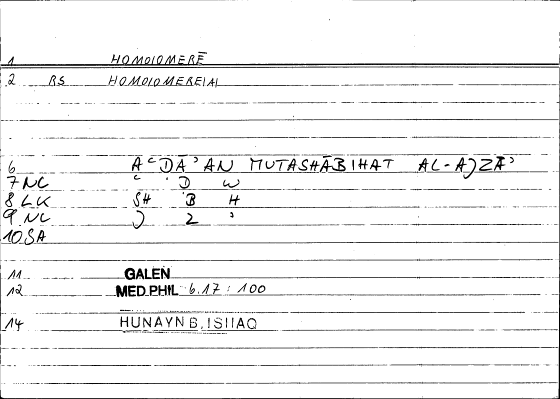 1 HOMOIOMERĒ
2 RS HOMOIOMEREIAI
6 AʿḌĀʾAN MUTASHĀBIHAT AL-AJZĀʾ
7 NC ʿ Ḍ W
8 LK SH B H
9 NC J Z ʾ
10 SA
11 GALEN
12 MED.PHIL 6.17 : 100
14 HUNAYN B. ISHAQ